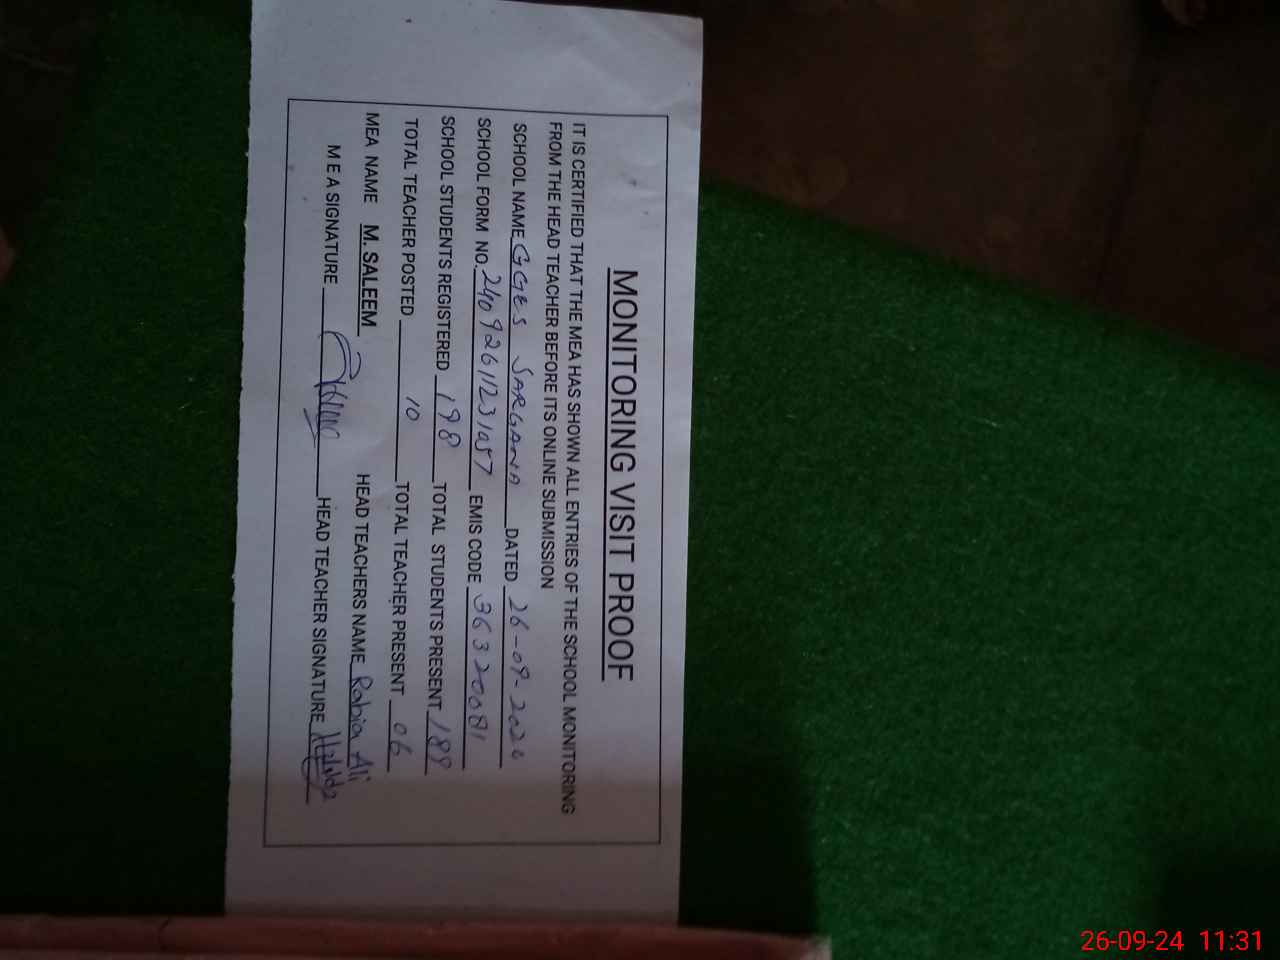 MONITORING VISIT PROOF
IT IS CERTIFIED THAT THE MEA HAS SHOWN ALL ENTRIES OF THE SCHOOL MONITORING
FROM THE HEAD TEACHER BEFORE ITS ONLINE SUBMISSION
SCHOOL NAME GGES SARGANA DATED 26-09-2024
SCHOOL FORM NO. 24092611231057 EMIS CODE 36320081
SCHOOL STUDENTS REGISTERED 198 TOTAL STUDENTS PRESENT 189
TOTAL TEACHER POSTED 10 TOTAL TEACHER PRESENT 06
MEA NAME M. SALEEM HEAD TEACHERS NAME Rabia Ali
M E A SIGNATURE HEAD TEACHER SIGNATURE
26-09-24 11:31